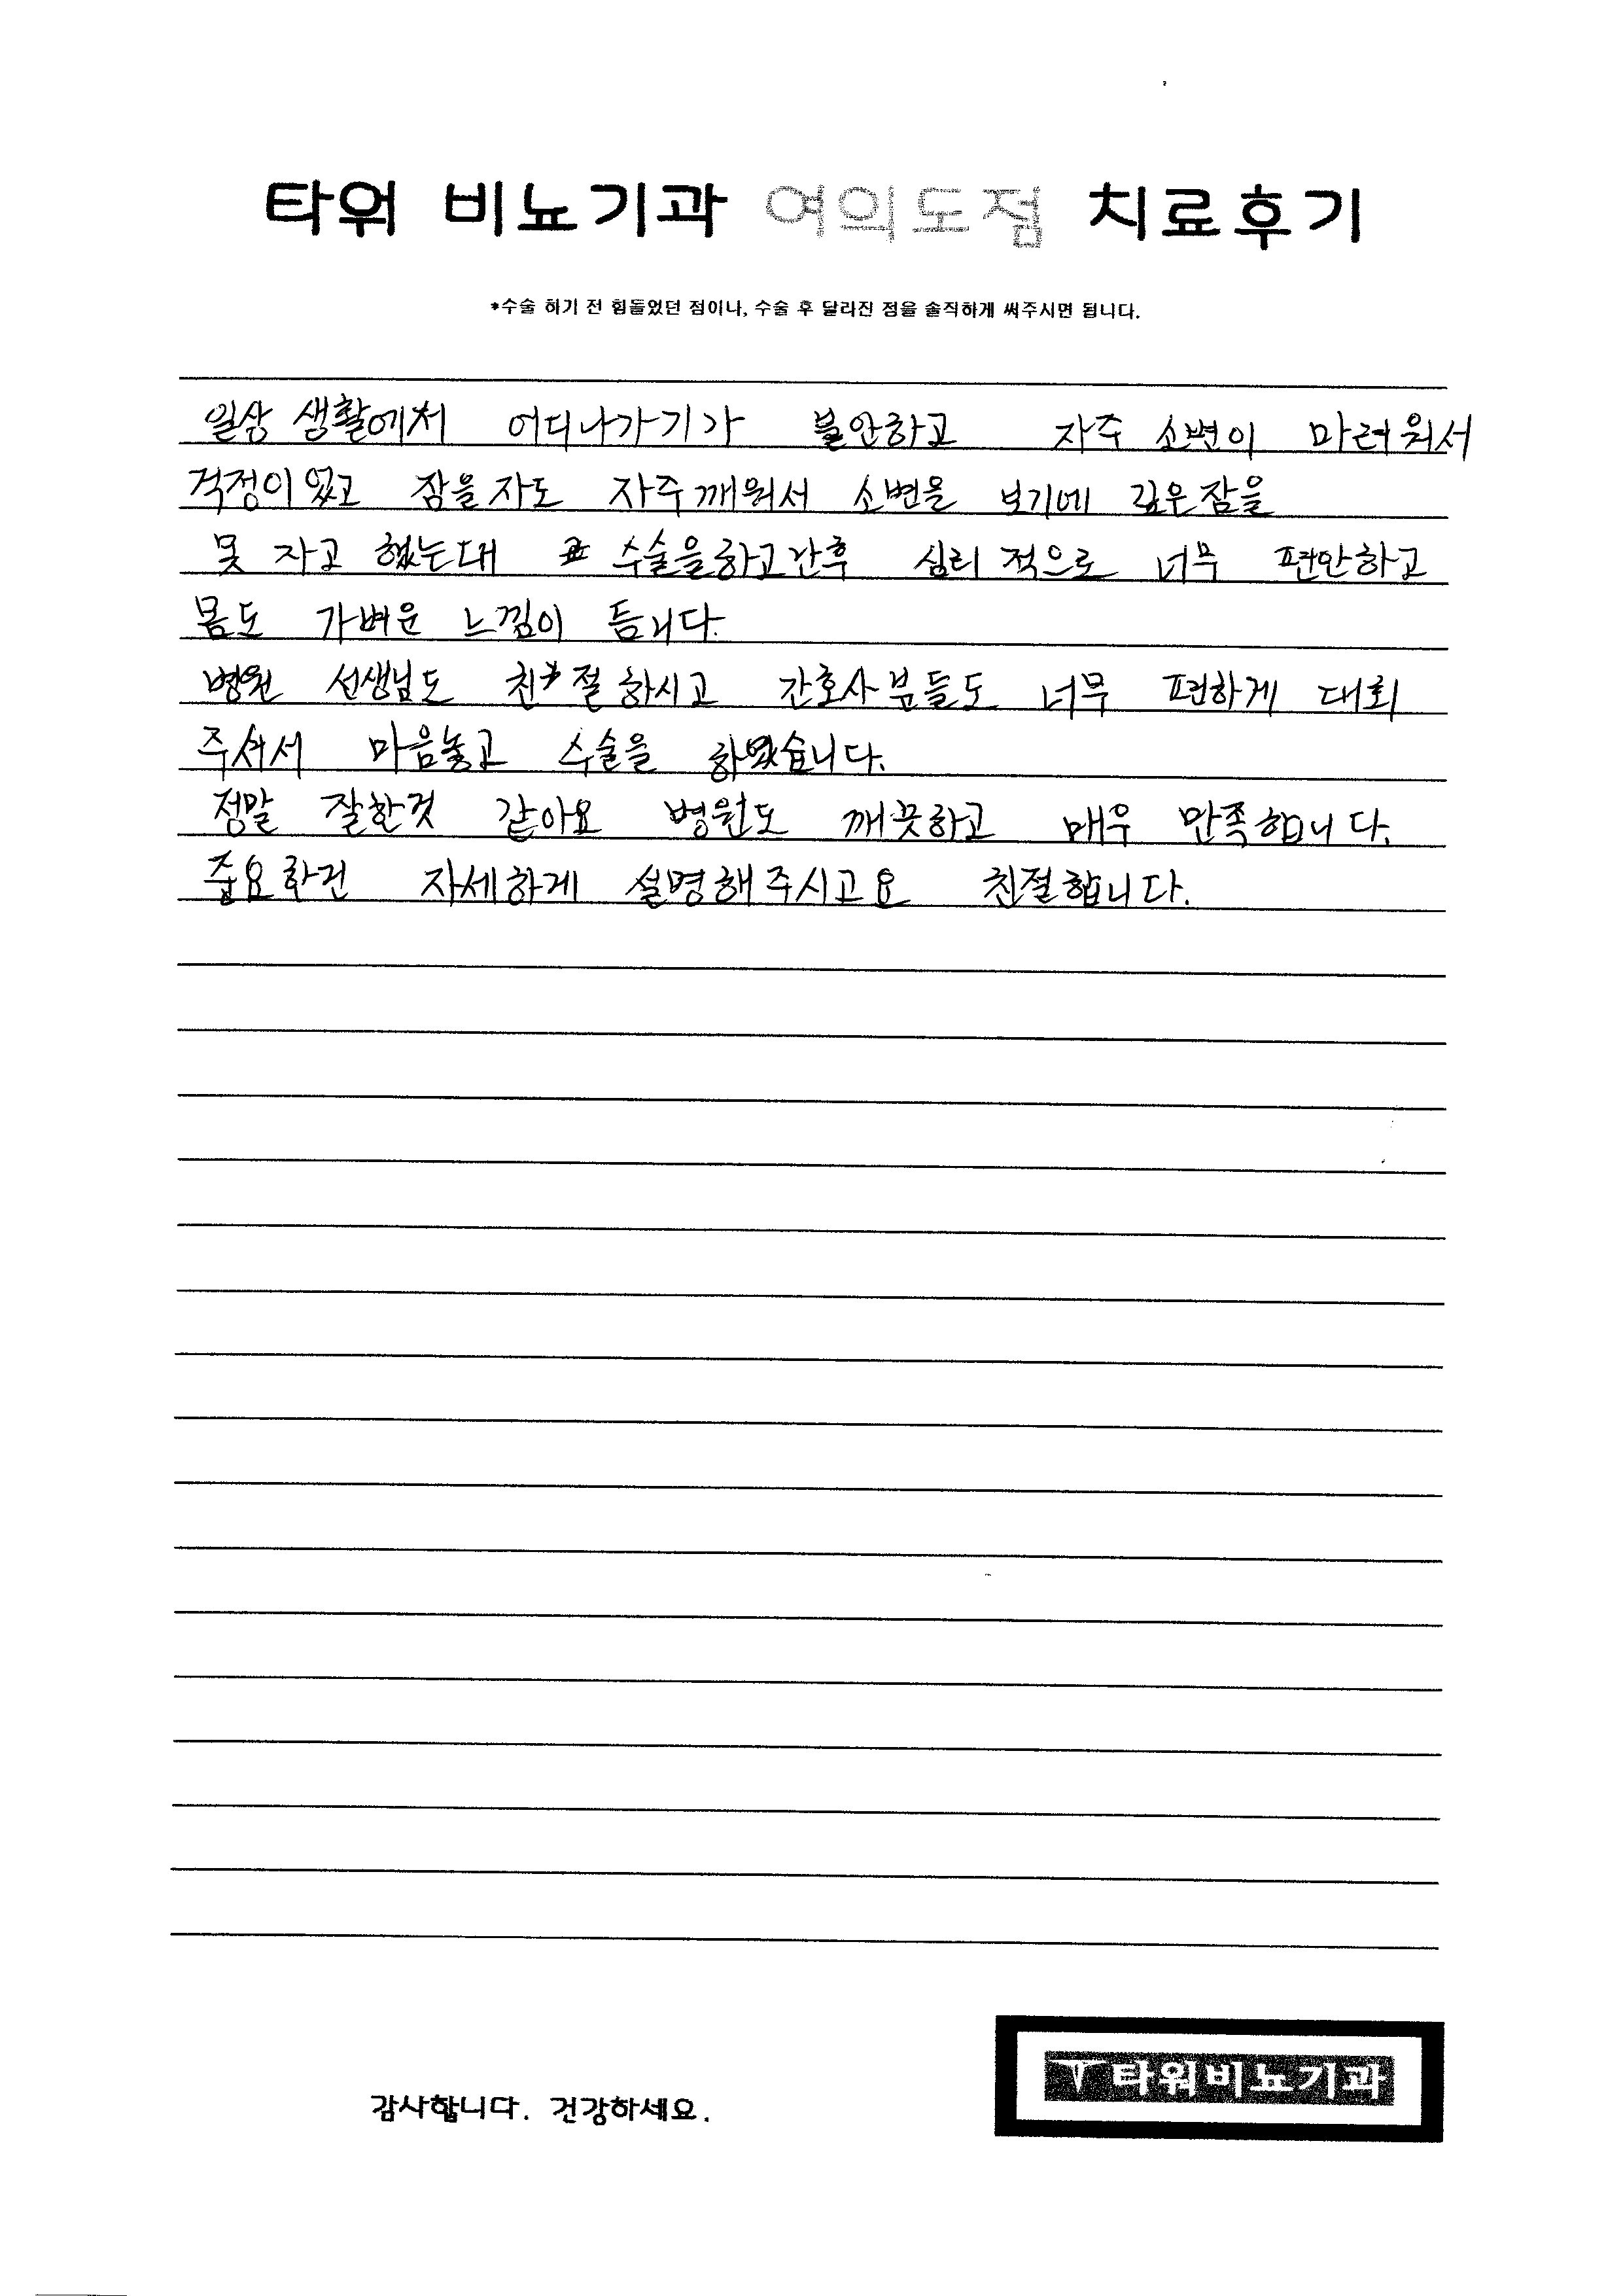 타워 비뇨기과 여의도점 치료후기
*수술 하기 전 힘들었던 점이나, 수술 후 달라진 점을 솔직하게 써주시면 됩니다.
일상 생활에서 어디나가기가 불안하고 자주 소변이 마려워서
걱정이 있고 잠을 자도 자주 깨워서 소변을 보기에 깊은잠을
못 자고 했는대 수술을하고간후 심리 적으로 너무 편안하고
몸도 가벼운 느낌이 듭니다.
병원 선생님도 친절 하시고 간호사 분들도 너무 편하게 대회
주셔서 마음놓고 수술을 하였습니다.
정말 잘한것 같아요 병원도 깨끗하고 매우 만족합니다.
중요한건 자세하게 설명해 주시고요 친절합니다.
감사합니다. 건강하세요.
타워비뇨기과